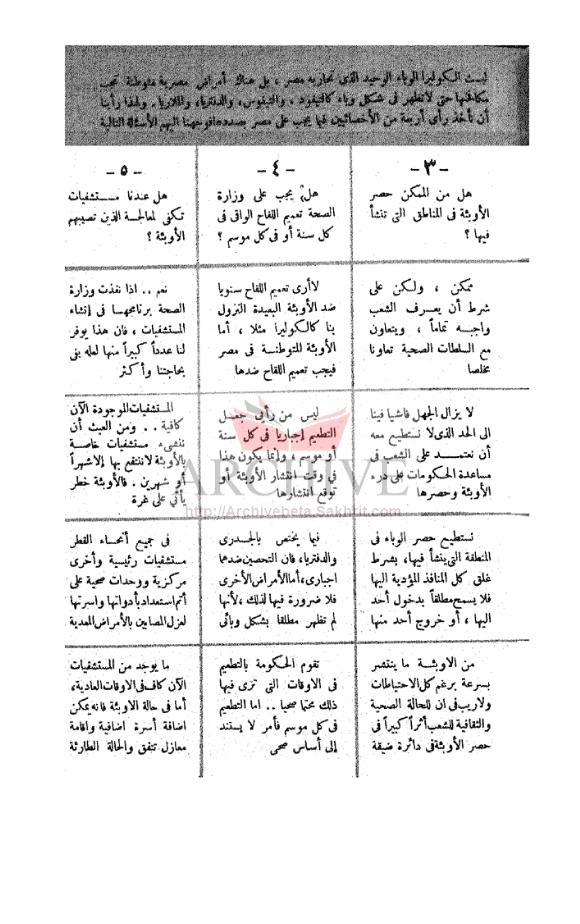 ليست الكوليرا الوباء الوحيد الذى تحاربه مصر ، بل هناك أمراض مصرية متوطنة تجب
مكافحتها حتى لا تظهر فى شكل وباء كالتيفود ، والتيفوس، والدفتريا، والملاريا . ولهذا رأينا
أن نأخذ رأى أربعة من الأخصائيين فيما يجب على مصر بصدده فوجهنا اليهم الأسئلة التالية
- ٣ -
هل من الممكن حصر
الأوبئة فى المناطق التى تنشأ
فيها ؟
- ٤ -
هل يجب على وزارة
الصحة تعميم اللقاح الواقى فى
كل سنة أو فى كل موسم ؟
- ٥ -
هل عندنا مستشفيات
تكفى لمعالجة الذين تصيبهم
الأوبئة ؟
ممكن ، ولكن على
شرط أن يعرف الشعب
واجبه تماماً ، ويتعاون
مع السلطات الصحية تعاونا
مخلصا
لا أرى تعميم اللقاح سنويا
ضد الأوبئة البعيدة النزول
بنا كالكوليرا مثلا ، أما
الأوبئة المتوطنة فى مصر
فيجب تعميم اللقاح ضدها
نعم .. اذا نفذت وزارة
الصحة برنامجها فى إنشاء
المستشفيات ، فان هذا يوفر
لنا عدداً كبيراً منها لعله يفى
بحاجتنا وأكثر
لا يزال الجهل فاشيا فينا
الى الحد الذى لا نستطيع معه
أن نعتمد على الشعب فى
مساعدة الحكومات على درء
الأوبئة وحصرها
ليس من رأيى جعل
التطعيم إجباريا فى كل سنة
أو موسم ، وإنما يكون هذا
فى وقت انتشار الأوبئة أو
توقع انتشارها
المستشفيات الموجودة الآن
كافية . . ومن العبث أن
ننشىء مستشفيات خاصة
بالأوبئة لا ننتفع بها إلا شهراً
أو شهرين . فالأوبئة خطر
يأتى على غرة
ARCHIVE
http://Archivebeta.Sakhrit.com
نستطيع حصر الوباء فى
المنطقة التى ينشأ فيها، بشرط
غلق كل المنافذ المؤدية اليها
فلا يسمح مطلقاً بدخول أحد
اليها ، أو خروج أحد منها
فيما يختص بالجدرى
والدفتريا، فان التحصين ضدهما
اجبارى، أما الأمراض الأخرى
فلا ضرورة فيها لذلك ، لأنها
لم تظهر مطلقا بشكل وبائى
فى جميع أنحاء القطر
مستشفيات رئيسية وأخرى
مركزية ووحدات صحية على
أتم استعداد بأدواتها وأسرتها
لعزل المصابين بالأمراض المعدية
من الأوبئة ما ينتشر
بسرعة برغم كل الاحتياطات
ولا ريب فى ان للحالة الصحية
والثقافية للشعب أثراً كبيراً فى
حصر الأوبئة فى دائرة ضيقة
تقوم الحكومة بالتطعيم
فى الاوقات التى ترى فيها
ذلك محتما صحيا .. اما التطعيم
فى كل موسم فأمر لا يستند
إلى أساس صحى
ما يوجد من المستشفيات
الآن كاف فى الاوقات العادية،
أما فى حالة الاوبئة فانه يمكن
اضافة أسرة اضافية واقامة
معازل تتفق والحالة الطارئة